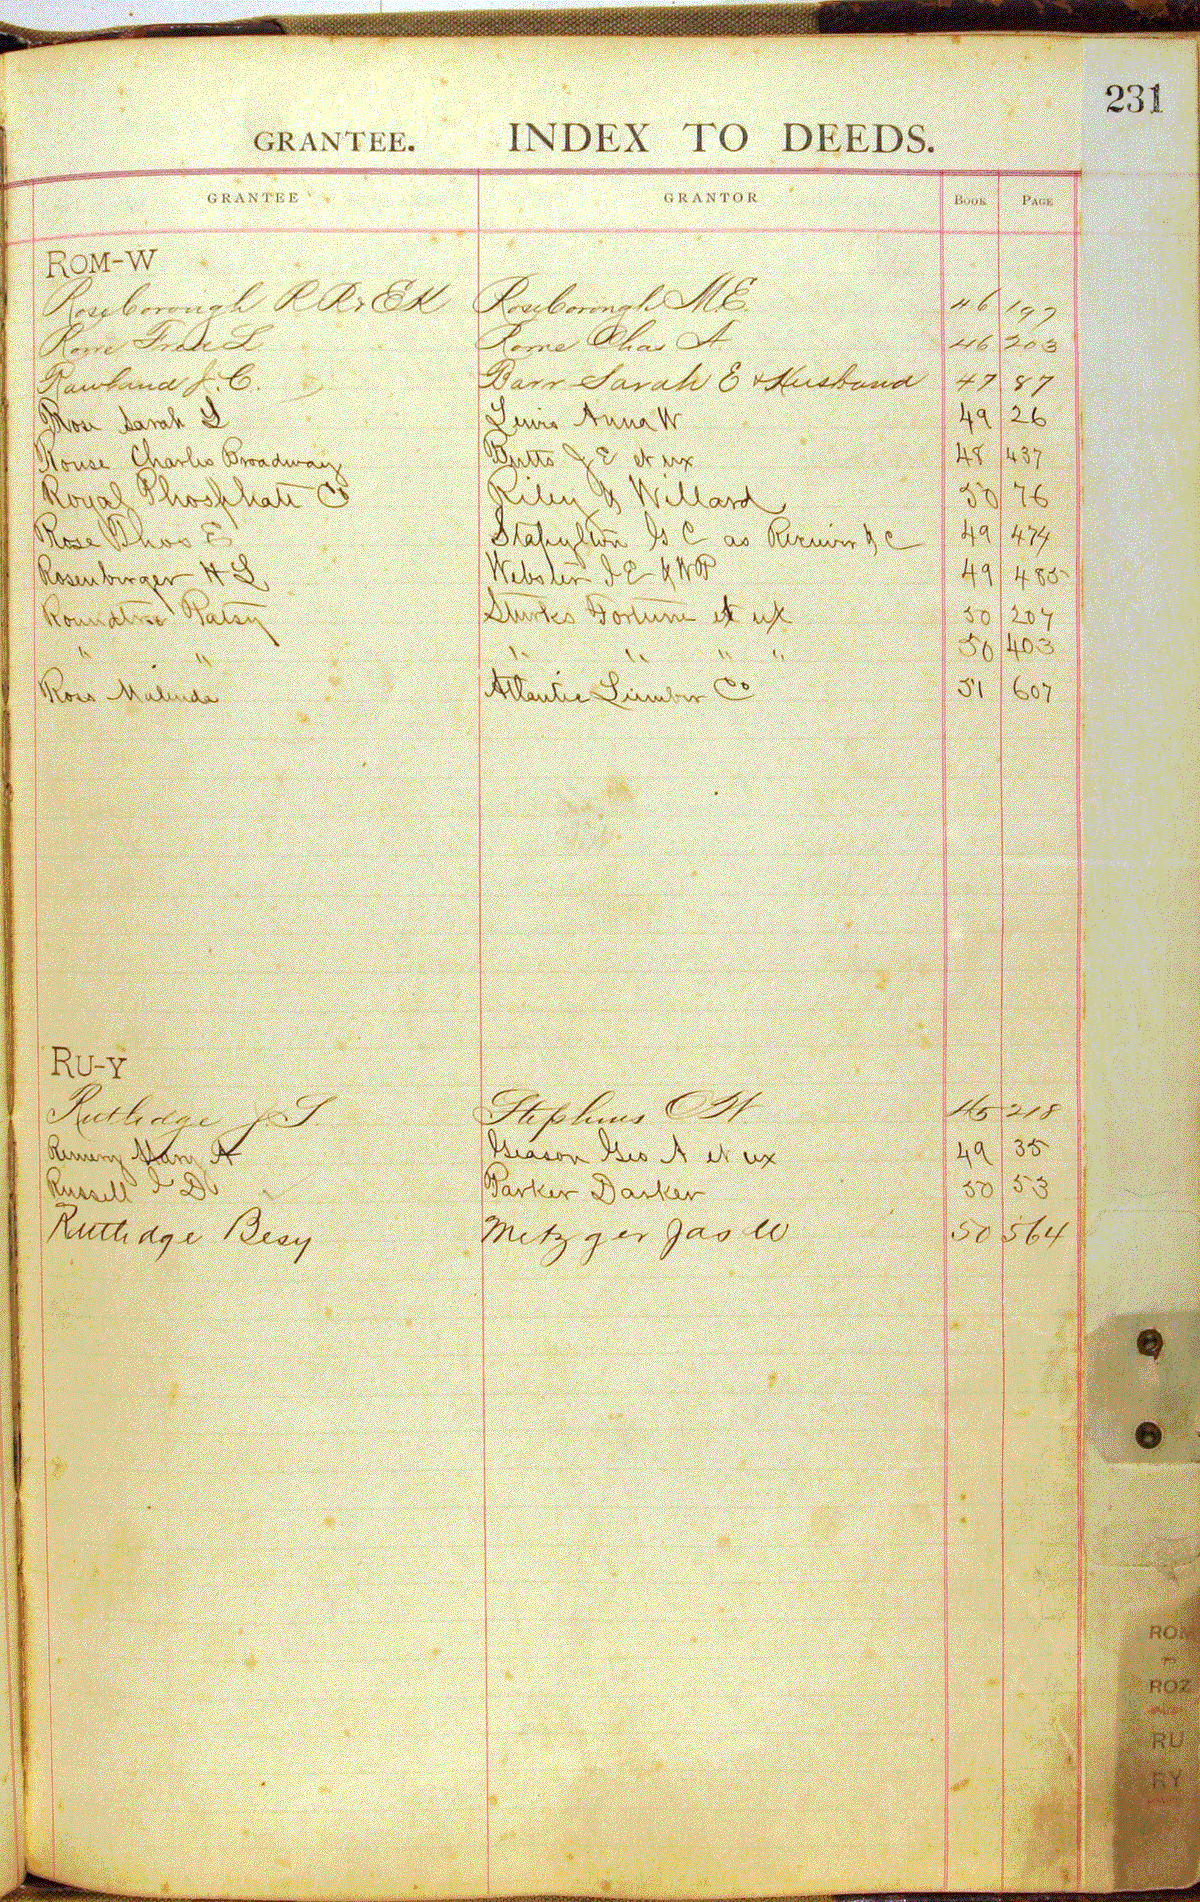 231
GRANTEE. INDEX TO DEEDS.
GRANTEE GRANTOR BOOK PAGE
ROM-W
Roseborough R R & E K Roseborough M.E. 46 197
Rome Fred L Rome Chas A. 46 203
Rowland J. C. Barr Sarah E & Husband 47 87
Rose Sarah L Lewis Anna W 49 26
Rouse Charles Broadway Butts J E et ux 48 437
Royal Phosphate Co Riley & Willard 50 76
Rose Thos E Stapylton G C as Receiver & C 49 474
Rosenberger H L Webster J E & W P 49 485
Roundtree Patsy Sturks Fortune et ux 50 207
" " " " " " 50 403
Ross Malinda Atlantic Lumber Co 51 607
RU-Y
Rutledge J. S. Stephens O.H. 45 218
Mary A Geason Geo A et ux 49 35
Russell J D Parker Darker 50 53
Rutledge Besy Metzger Jas W 50 564
ROM
ROZ
RU
RY